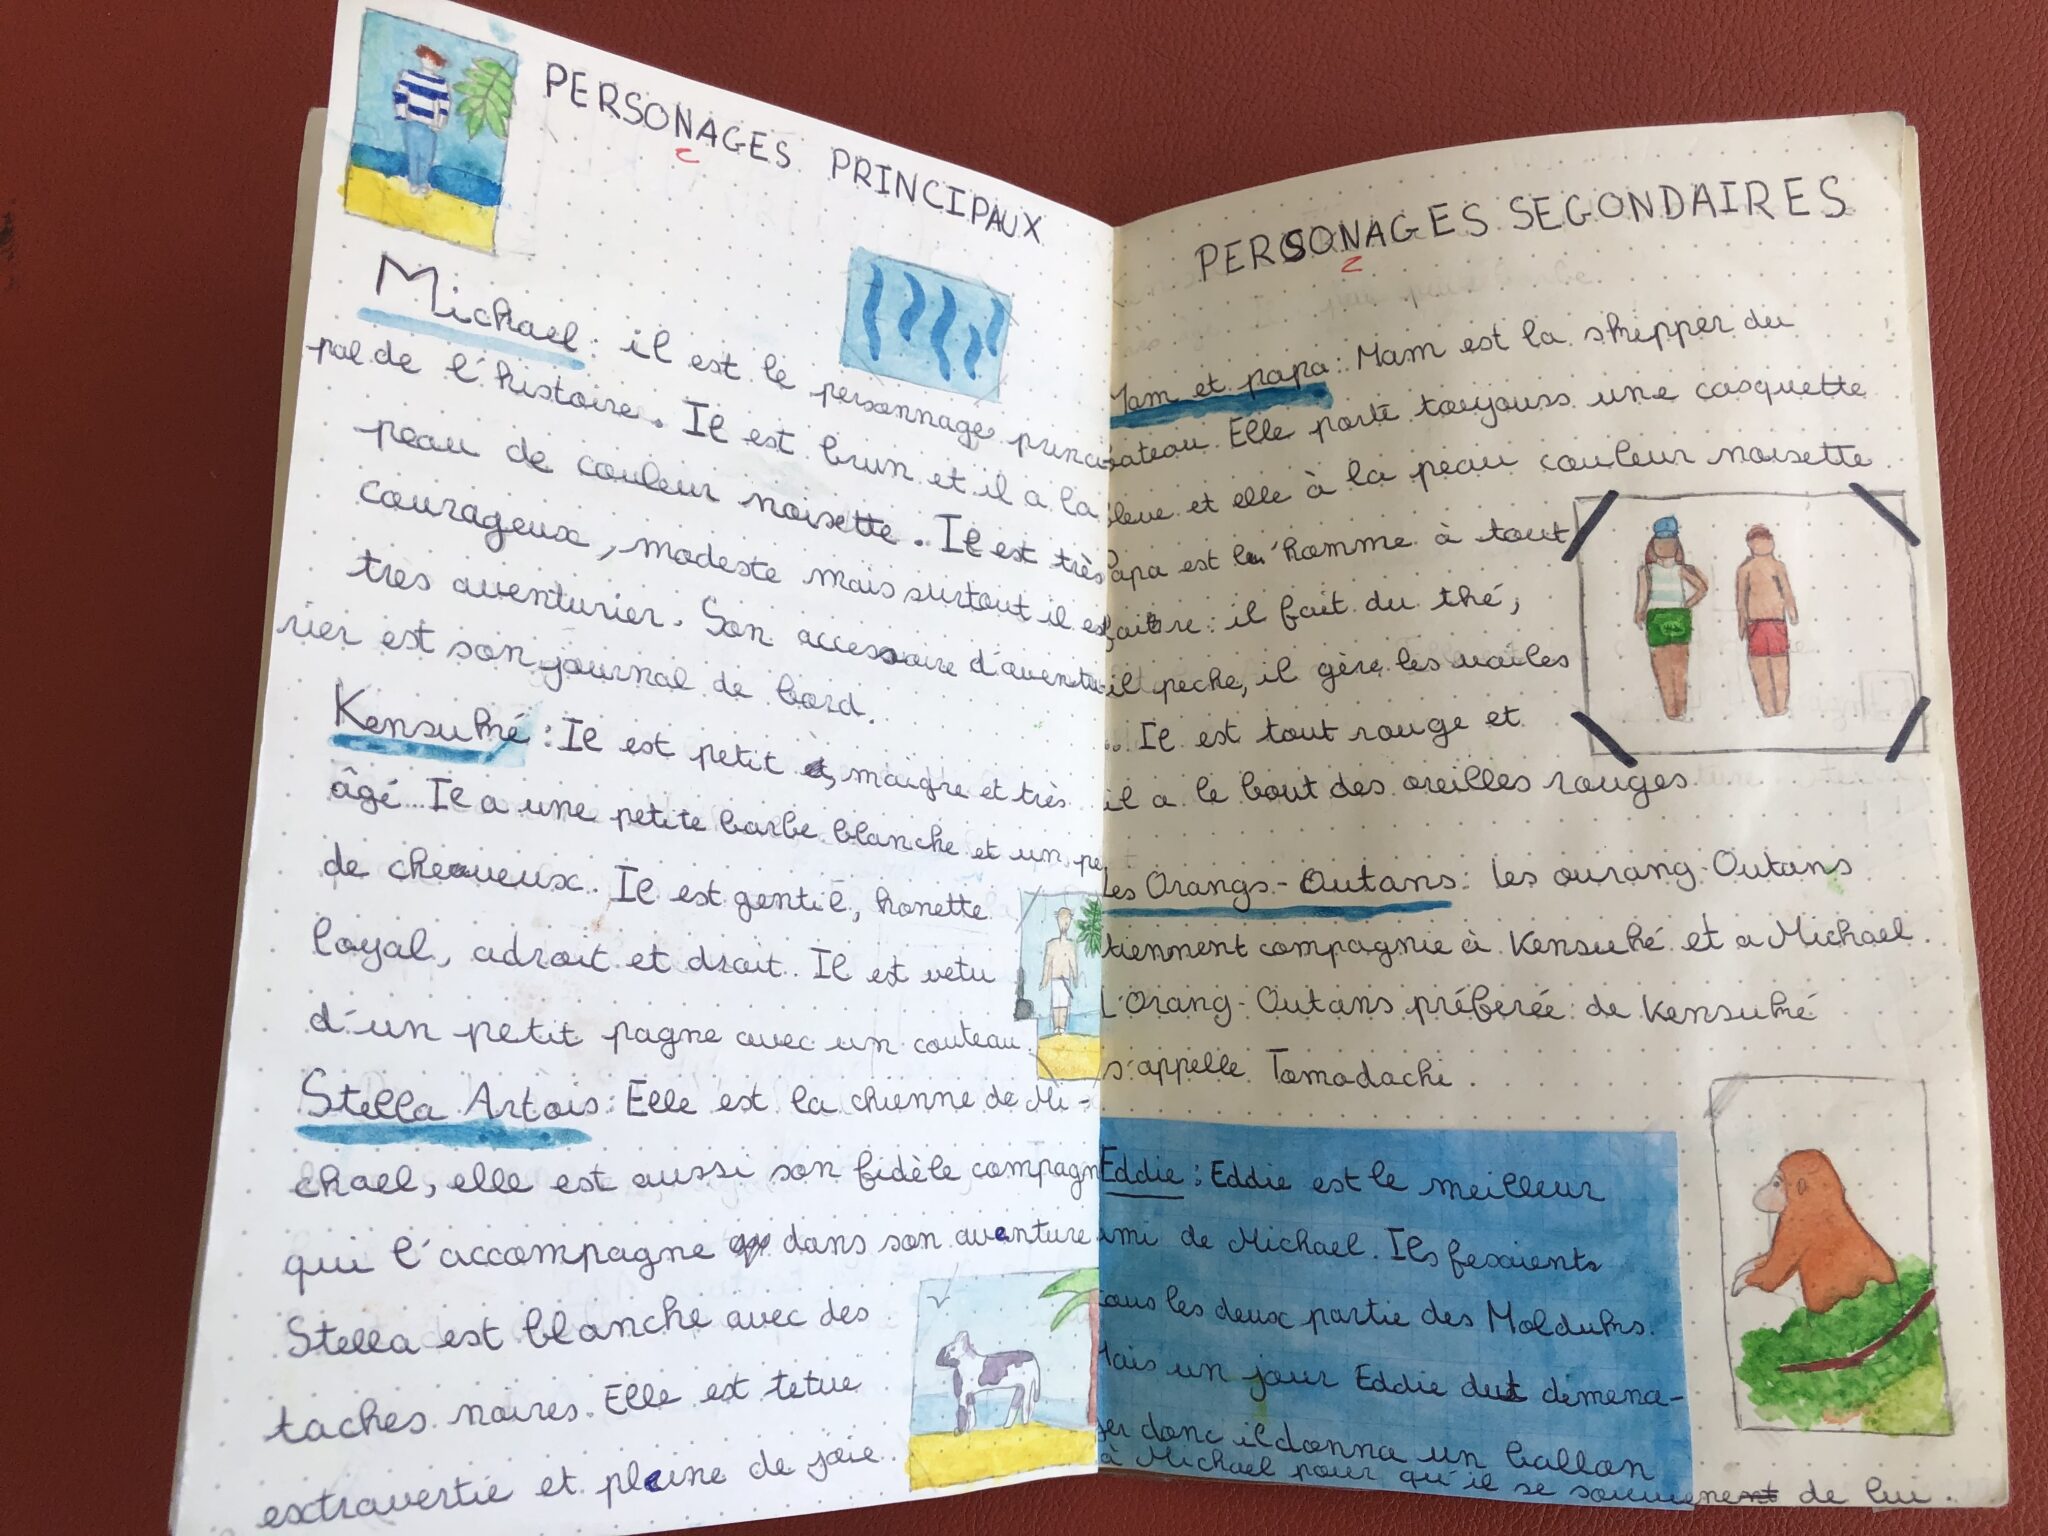 PERSONAGES PRINCIPAUX
Michael : il est le personnage princi-
pal de l'histoire. Il est brun et il a la
peau de couleur noisette. Il est très
courageux, modeste mais surtout il es
très aventurier. Son accessoire d'aventu-
rier est son journal de bord.
Kensuké : Il est petit, maigre et très
âgé. Il a une petite barbe blanche et un pe
de cheveux. Il est gentil, honette
loyal, adroit et droit. Il est vetu
d'un petit pagne avec un couteau.
Stella Artois : Elle est la chienne de Mi-
chael, elle est aussi son fidèle compagn
qui l'accompagne dans son aventure
Stella est blanche avec des
taches noires. Elle est tetue
extravertie et pleine de joie.
PERSONAGES SEGONDAIRES
Mam et papa : Mam est la skipper du
bateau. Elle porte toujours une casquette
bleue et elle à la peau couleur noisette
Papa est l'homme à tout
faire : il fait du thé,
il peche, il gère les voiles
... Il est tout rouge et
il a le bout des oreilles rouges.
Les Orangs-Outans : les ourang-Outans
tiennent compagnie à Kensuké et a Michael.
L'Orang-Outans préferée de Kensuké
s'appelle Tomodachi.
Eddie : Eddie est le meilleur
ami de Michael. Ils fesaients
tous les deux partie des Molduks.
Mais un jour Eddie dut démena-
ger donc il donna un ballon
à Michael pour qu'il se souvienne de lui.